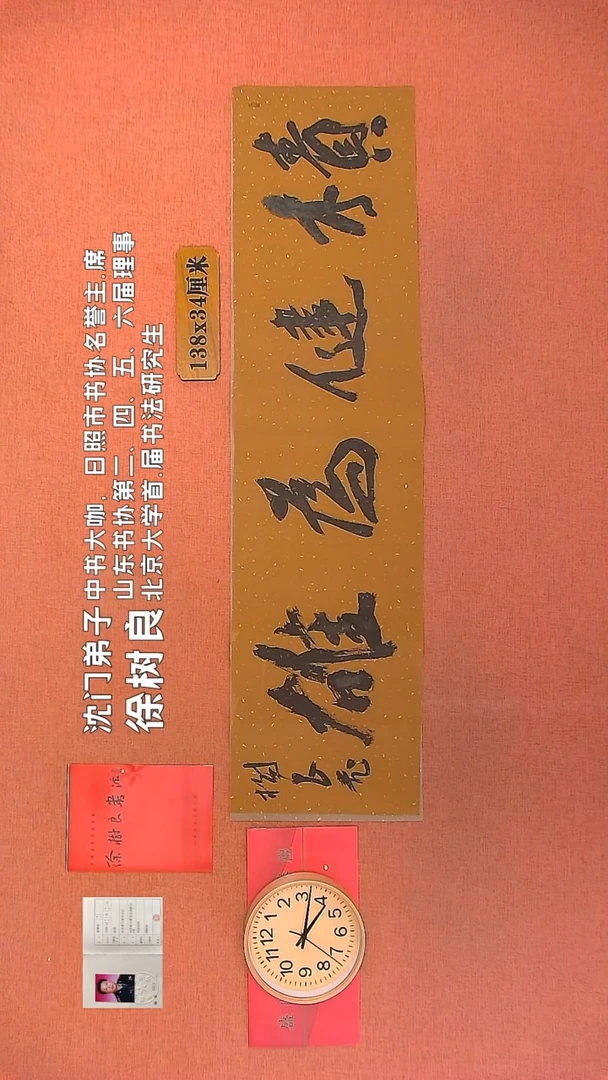 沈门弟子 中书大咖，日照市书协名誉主席
徐树良 山东书协第二、四、五、六届理事
北京大学首届书法研究生
138x34厘米
積健為雄
12
1
2
3
4
5
6
7
8
9
10
11